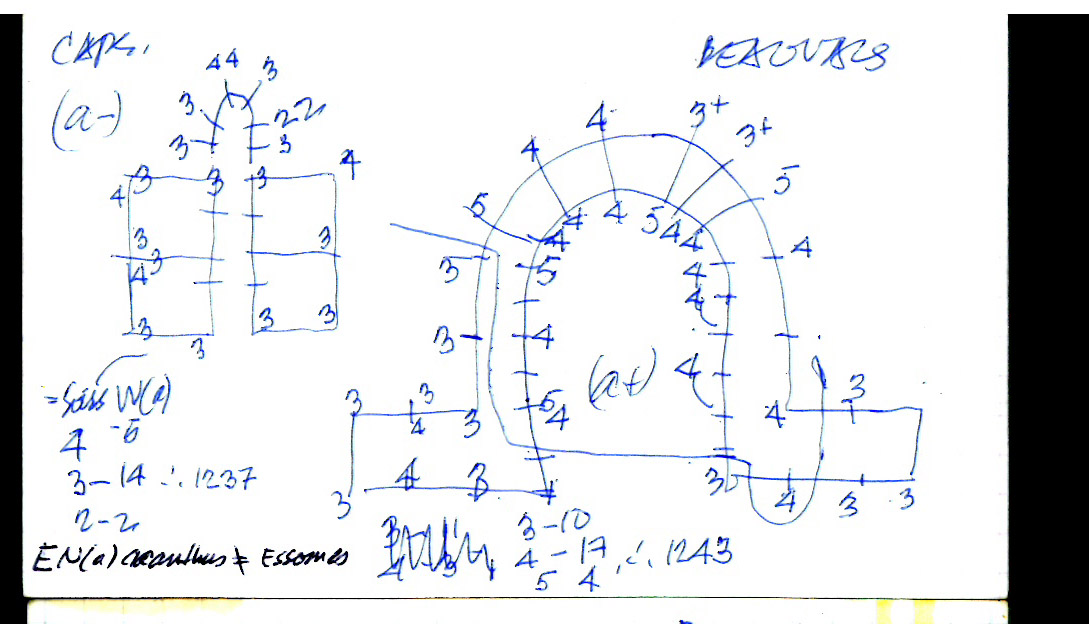 CAPS.
BEAUVAIS
(a-)
4 4 3
3 2 2
3 3
3 3 3 4
4
3 3
3
4
3 3 3
3
4 4- 3+
3+
5
5
4 4 5 4 4
4
3 5 4
4
4
3 4
(a+) 4
3 3 5 3
4 3 4 4
4 3 3
3 4 4 3 3
W(a)
4 -5
3-14 ∴ 1237
2-2
3-10
4-17 ∴ 1243
5 4
EN(a) acanthus ≠ Essomes